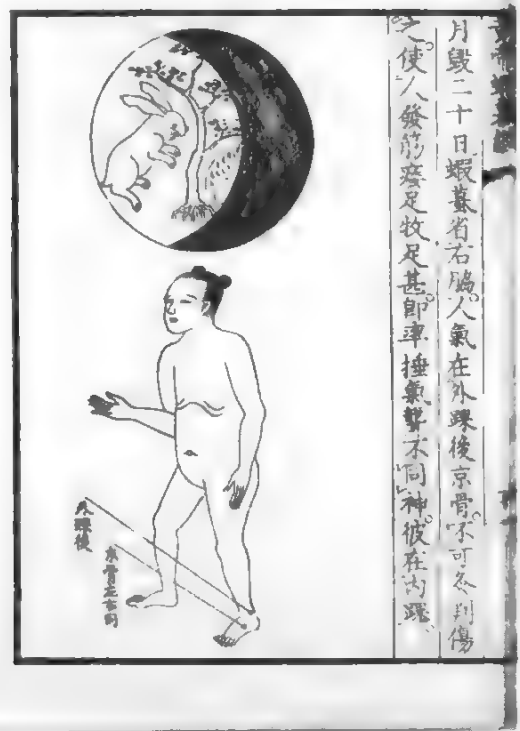 月毀二十日蝦蟇省右脇。人氣在外踝後京骨。不可灸判傷
之。使人發筋痿足牧足甚。即率捶氣聾不同。神彼在内踝
外踝後
京骨左右同